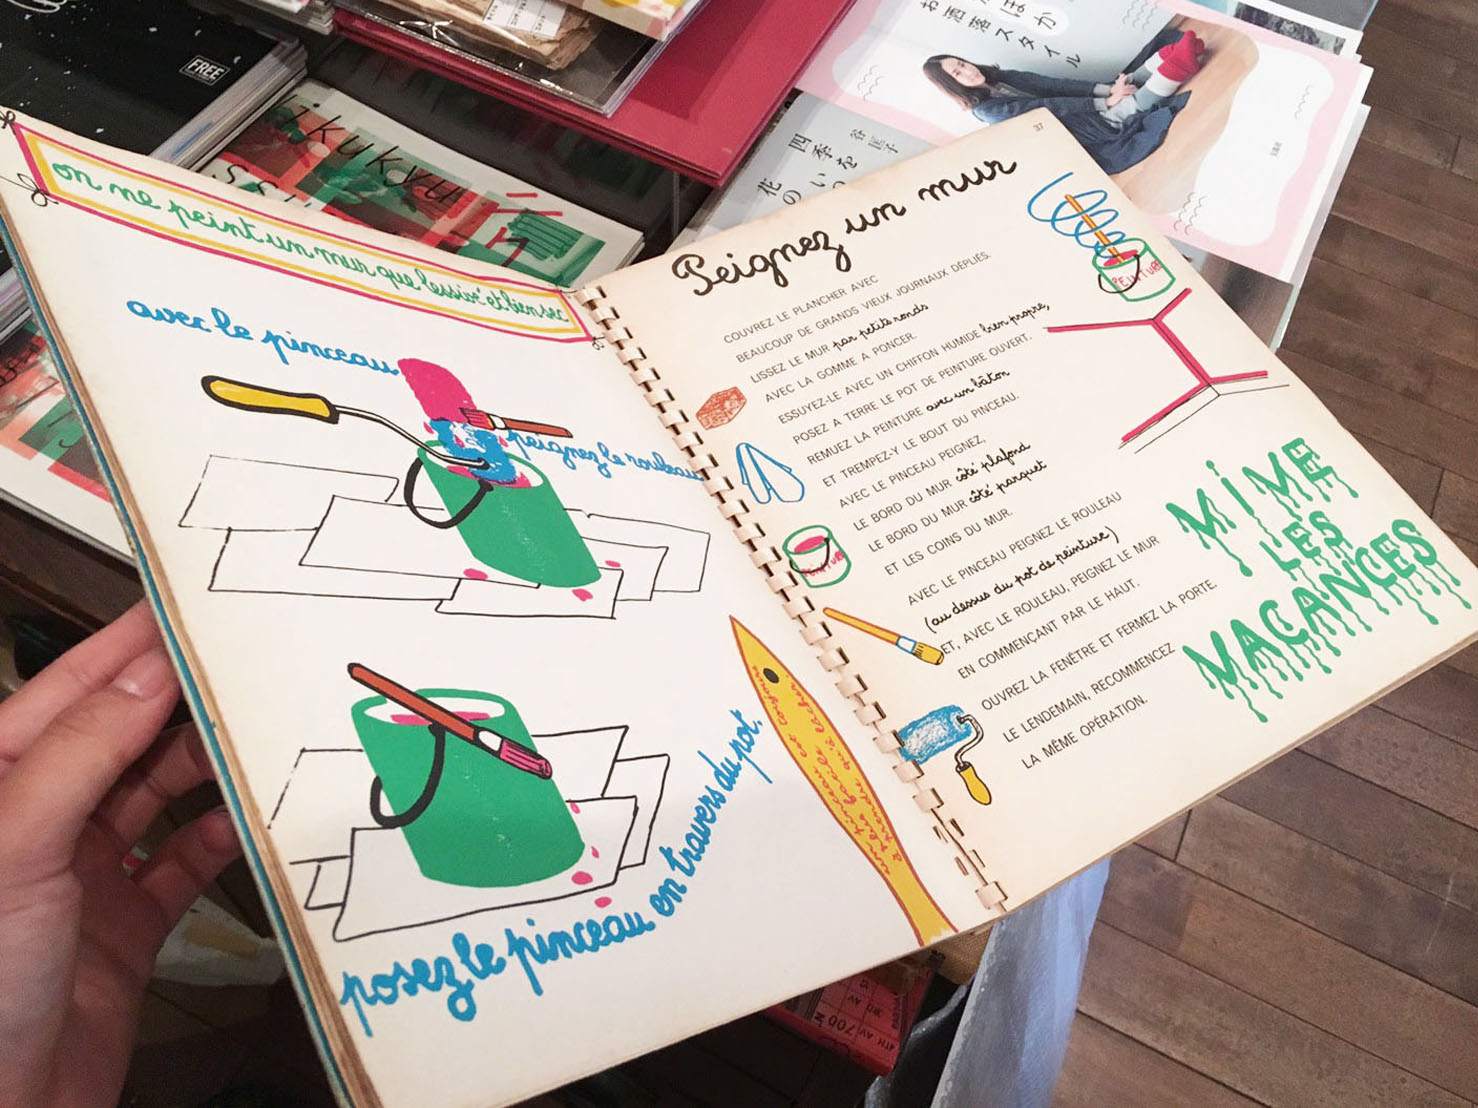 FREE
ほか
お洒落スタイル
谷 匡子
四季をいつ
花の
on ne peint un mur que lessivé et bien sec
avec le pinceau
peignez le rouleau
posez le pinceau en travers du pot.
un pinceau c'est toujours
plus facile
à prendre qu'à lâcher.
37
Peignez un mur
COUVREZ LE PLANCHER AVEC
BEAUCOUP DE GRANDS VIEUX JOURNAUX DÉPLIÉS.
LISSEZ LE MUR par petits ronds
AVEC LA GOMME A PONCER.
ESSUYEZ-LE AVEC UN CHIFFON HUMIDE bien propre,
POSEZ A TERRE LE POT DE PEINTURE OUVERT.
REMUEZ LA PEINTURE avec un bâton
ET TREMPEZ-Y LE BOUT DU PINCEAU.
AVEC LE PINCEAU PEIGNEZ,
LE BORD DU MUR côté plafond
LE BORD DU MUR côté parquet
ET LES COINS DU MUR.
AVEC LE PINCEAU PEIGNEZ LE ROULEAU
(au dessus du pot de peinture)
ET, AVEC LE ROULEAU, PEIGNEZ LE MUR
EN COMMENÇANT PAR LE HAUT.
OUVREZ LA FENÊTRE ET FERMEZ LA PORTE.
LE LENDEMAIN, RECOMMENCEZ
LA MÊME OPÉRATION.
PEINTURE
MIME
LES
MACANCES
4TH. AV
700 M
3RD AV